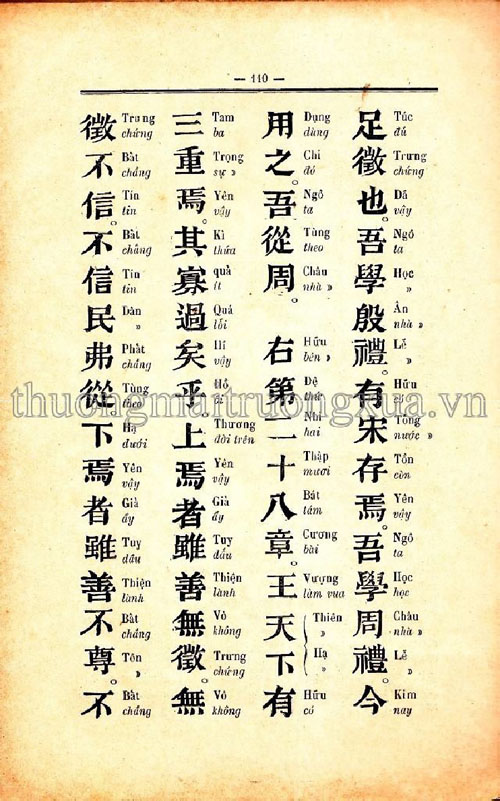 — 110 —
足徵也。吾學殷禮。有宋存焉。吾學周禮。今
Túc
đủ
Trưng
chứng
Dã
vậy
Ngô
ta
Học
»
Ân
nhà »
Lễ
»
Hữu
có
Tống
nước »
Tồn
còn
Yên
vậy
Ngô
ta
Học
học
Châu
nhà »
Lễ
»
Kim
nay
用之。吾從周。右第二十八章。王天下有
Dụng
dùng
Chi
đó
Ngô
ta
Tùng
theo
Châu
nhà »
Hữu
bên »
Đệ
thứ
Nhị
hai
Thập
mươi
Bát
tám
Cương
bài
Vượng
làm vua
Thiên
»
Hạ
»
Hữu
có
三重焉。其寡過矣乎。上焉者雖善無徵。無
Tam
ba
Trọng
sự »
Yên
vậy
Kì
thửa
quả
ít
Quá
lỗi
Hỉ
vậy
Hồ
ôi
Thương
đời trên
Yên
vậy
Giả
ấy
Tuy
dẫu
Thiện
lành
Vô
không
Trưng
chứng
Vô
không
徵不信。不信民弗從。下焉者雖善不尊。不
Trưng
chứng
Bất
chẳng
Tín
tin
Bất
chẳng
Tín
tin
Dân
»
Phất
chẳng
Tùng
theo
Hạ
dưới
Yên
vậy
Giả
ấy
Tuy
dẫu
Thiện
lành
Bất
chẳng
Tôn
»
Bất
chẳng
thuongmaitruongxua.vn